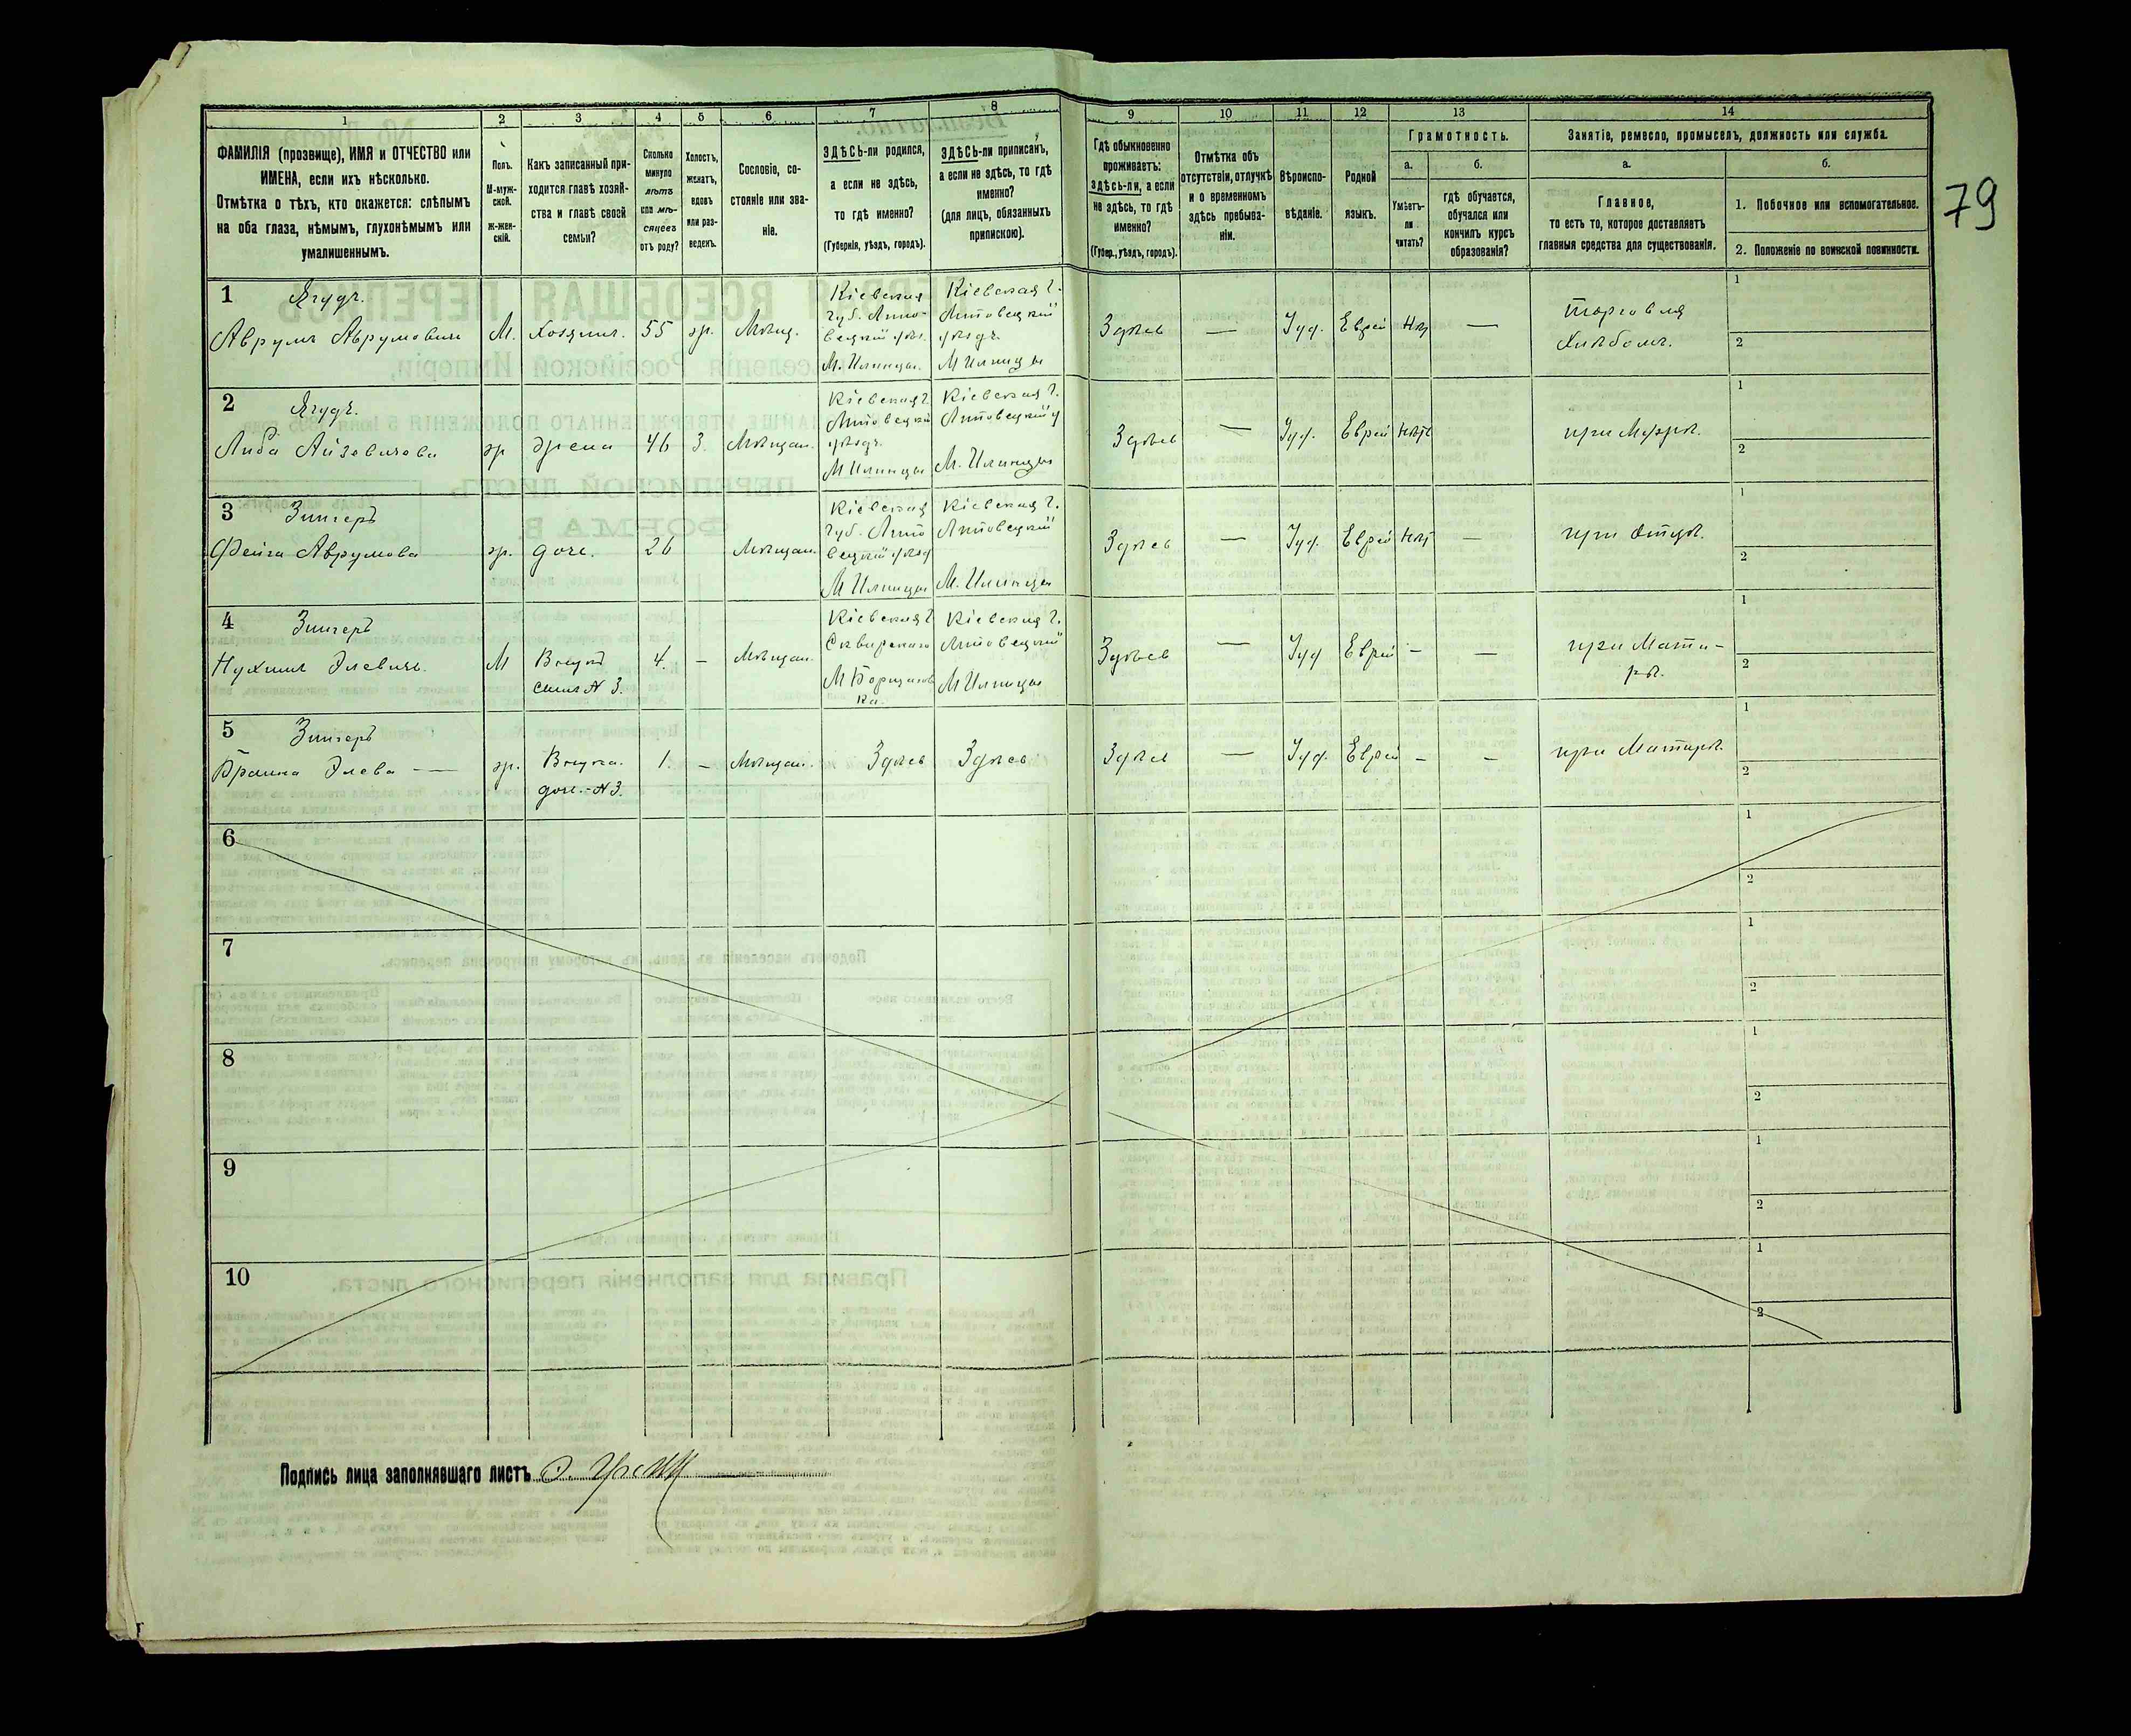 1 2 3 4 5 6 7 8 9 10 11 12 13 14
ФАМИЛІЯ (прозвище), ИМЯ и ОТЧЕСТВО или
ИМЕНА, если ихъ нѣсколько.
Отмѣтка о тѣхъ, кто окажется: слѣпымъ
на оба глаза, нѣмымъ, глухонѣмымъ или
умалишеннымъ.
Полъ.
М-муж-
ской.
Ж-жен-
скій.
Какъ записанный при-
ходится главѣ хозяй-
ства и главѣ своей
семьи?
Сколько
минуло
лѣтъ
или мѣ-
сяцевъ
отъ роду?
Холостъ,
женатъ,
вдовъ
или раз-
веденъ.
Сословіе, со-
стояніе или зва-
ніе.
ЗДѢСЬ-ли родился,
а если не здѣсь,
то гдѣ именно?
(Губернія, уѣздъ, городъ).
ЗДѢСЬ-ли приписанъ,
а если не здѣсь, то гдѣ
именно?
(для лицъ, обязанныхъ
припискою).
Гдѣ обыкновенно
проживаетъ:
здѣсь-ли, а если
не здѣсь, то гдѣ
именно?
(Губер., уѣздъ, городъ).
Отмѣтка объ
отсутствіи, отлучкѣ
и о временномъ
здѣсь пребыва-
ніи.
Вѣроиспо-
вѣданіе.
Родной
языкъ.
Грамотность.
а.
Умѣетъ-
ли
читать?
б.
гдѣ обучается,
обучался или
кончилъ курсъ
образованія?
Занятіе, ремесло, промыселъ, должность или служба.
а.
Главное,
то есть то, которое доставляетъ
главныя средства для существованія.
б.
1. Побочное или вспомогательное.
2. Положеніе по воинской повинности.
79
1 Ягудъ.
Аврумъ Аврумовичъ М. Хозяинъ. 55 ж. Мѣщ.
Кіевская
губ. Липо-
вецкій уѣз.
М. Илинцы.
Кіевская г.
Липовецкій
уѣздъ.
М Илинцы
Здѣсь — Іуд. Еврей Нѣт —
Торговля
Хлѣбомъ.
1
2
2 Ягудъ.
Либа Айзовичова ж жена 46 З. Мѣщан.
Кіевская г.
Липовецкій
уѣздъ.
М Илинцы
Кіевская г.
Липовецкій у
М. Илинцы
Здѣсь — Іуд. Еврей Нѣт
при Мужѣ.
1
2
3 Зингеръ
Фейга Аврумова ж. дочь. 26 Мѣщан.
Кіевская
губ. Липо
вецкій уѣзд
М Илинцы
Кіевская г.
Липовецкій
М. Илинцы
Здѣсь — Іуд. Еврей Нѣт —
при Отцѣ.
1
2
4 Зингеръ
Нухимъ Элевичъ. М Внукъ 4. — Мѣщан.
сынъ N 3.
Кіевская г
Сквирскаго
М Борщаков
ка.
Кіевская г.
Липовецкій
М Илинцы
Здѣсь — Іуд Еврей — —
при Мате-
рѣ.
1
2
5 Зингеръ
Браина Элева — ж. Внучка. 1. — Мѣщан. Здѣсь Здѣсь
дочь.-N 3.
Здѣсь — Іуд. Еврей — —
при Матерѣ.
1
2
6
1
2
7
1
2
8
1
2
9
1
2
10
1
2
Подпись лица заполнявшаго листъ